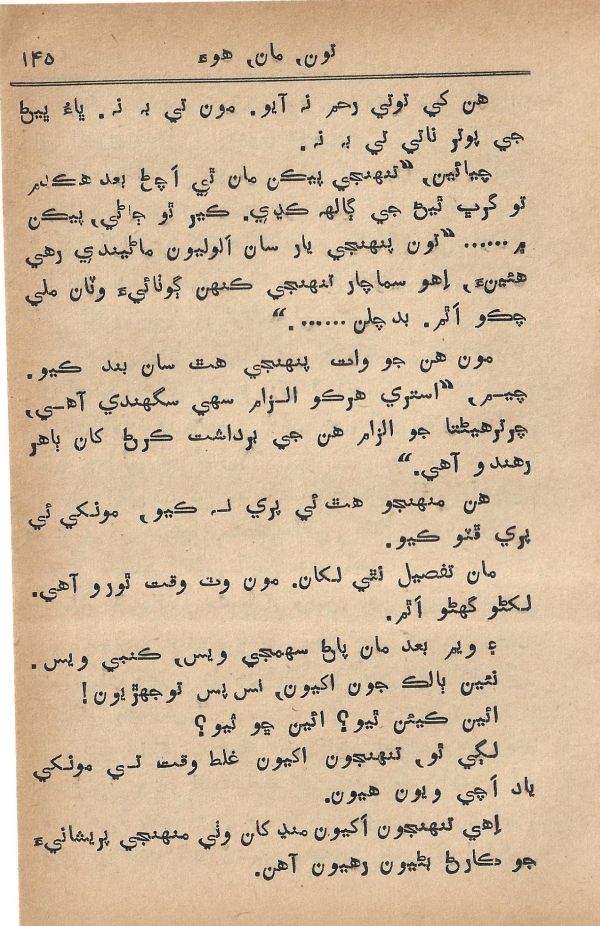 تون, مان, هوءَ ۱۴۵
هن کي توتي رحم نہ آيو. مون تي بہ نہ. ڀاءُ ڀيڻ
جي پوتر ناتي تي بہ نہ.
چيائين, “تنهنجي پيڪن مان ٿي اَچڻ بعد هڪدم
تو گرڀ ٿيڻ جي ڳالهہ ڪڍي. ڪير ٿو ڄاڻي, پيڪن
۾...... “تون پنهنجي يار سان اَلوليون ماڻيندي رهي
هئينءَ, اِهو سماچار تنهنجي ڪنهن ڳوٺائيءَ وٽان ملي
چڪو اَٿم. بدچلن.......“
مون هن جو وات پنهنجي هٿ سان بند ڪيو.
چيم, “استري هرڪو الزام سهي سگهندي آهي,
چرترهيڻتا جو الزام هن جي برداشت ڪرڻ کان ٻاهر
رهندو آهي.“
هن منهنجو هٿ ئي پري نہ ڪيو, مونکي ئي
پري ڦٽو ڪيو.
مان تفصيل نٿي لکان. مون وٽ وقت ٿورو آهي.
لکڻو گهڻو اَٿم.
۽ وير بعد مان پاڻ سهمجي ويس, ڪنبي ويس.
نئين ٻالڪ جون اکيون, بس پس توجهڙيون!
ائين ڪيئن ٿيو؟ ائين ڇو ٿيو؟
لڳي ٿو, تنهنجون اکيون غلط وقت تي مونکي
ياد اَچي ويون هيون.
اِهي تنهنجون اَکيون منڍ کان وٺي منهنجي پريشانيءَ
جو ڪارڻ بڻيون رهيون آهن.